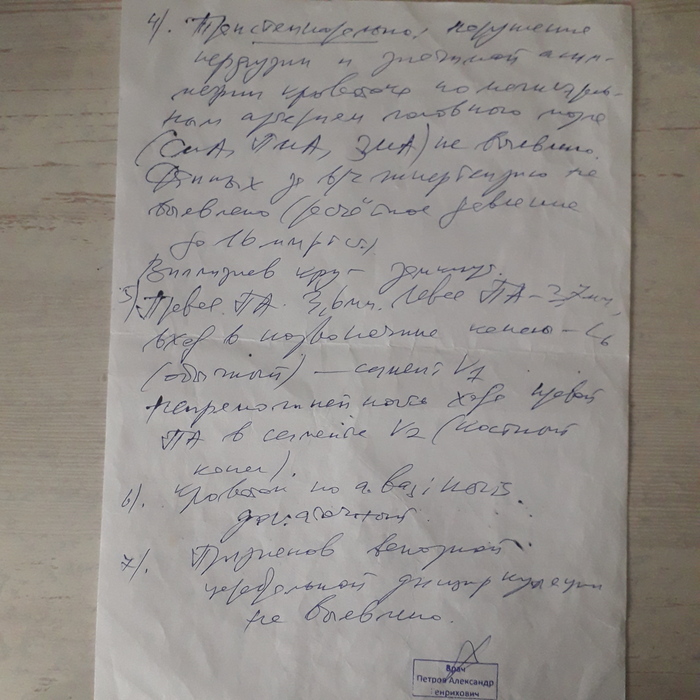 4). Транстемпорально: нарушение
перфузии и значимой асим-
метрии кровотока по магистраль-
ным артериям головного мозга
(СМА, ПМА, ЗМА) не выявлено.
Данных за в/ч гипертензию не
выявлено (расчётное давление
до 16 мм рт ст)
Виллизиев круг замкнут.
5). Правая ПА - 3,6 мм. Левая ПА - 3,7 мм,
вход в позвоночные каналы - C6
(обычный) — сегмент V1
непрямолинейность хода правой
ПА в сегменте V2 (костный
канал).
6). Кровоток по a. basilaris
достаточный.
7). Признаков венозной
церебральной дисциркуляции
не выявлено.
Врач
Петров Александр
енрихович